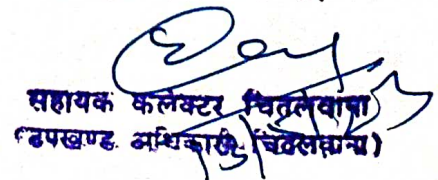 सहायक कलेक्टर चितलवाना
(उपखण्ड अधिकारी चितलवाना)